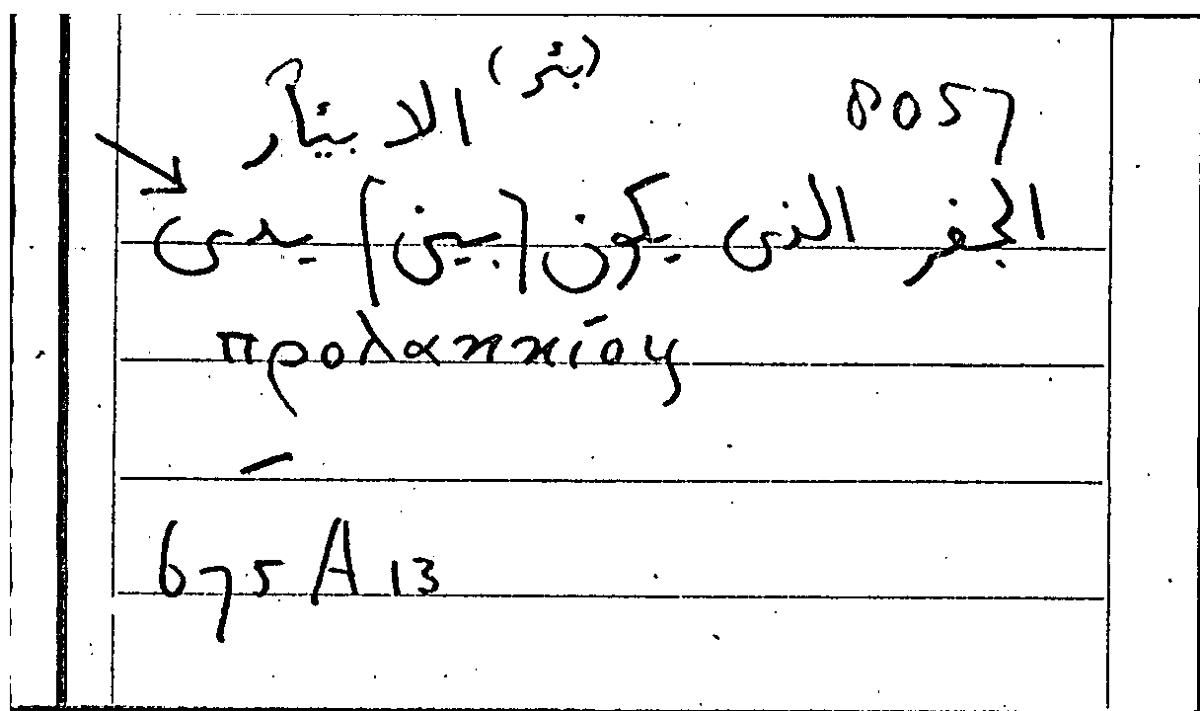 8057 (بئر)
الابئآر
الجفر الذى يكون [بين] يدى
προλακκίου
–
675 A 13